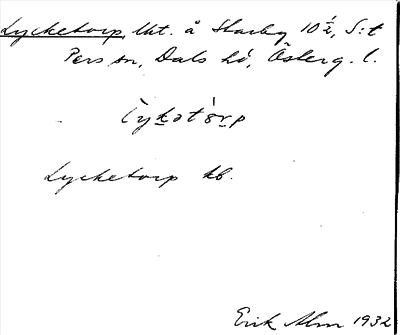 Lycketorp, lht. å Skarby 10 ½, S:t
Pers sn, Dals hd, Österg. l.
Lycketorp kb.
Erik Alm 1932